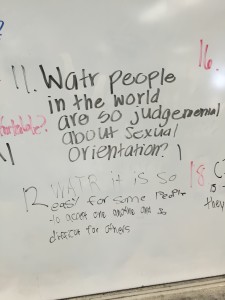 ?
11. Watr people
in the world
are so judgemental
about sexual
Orientation?
16.
12 WATR it is so
easy for some people
to accept one another and so
difficult for others
18
they